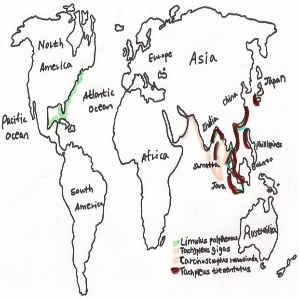 North
America
Europe
Asia
Japan
China
Atlantic
Ocean
Pacific
Ocean
India
Philippines
Africa
Sumatra
Borneo
Java
South
America
Australia
Limulus polyphemus
Tachypleus gigas
Carcinoscorpius rotundicauda
Tachypleus tridentatus